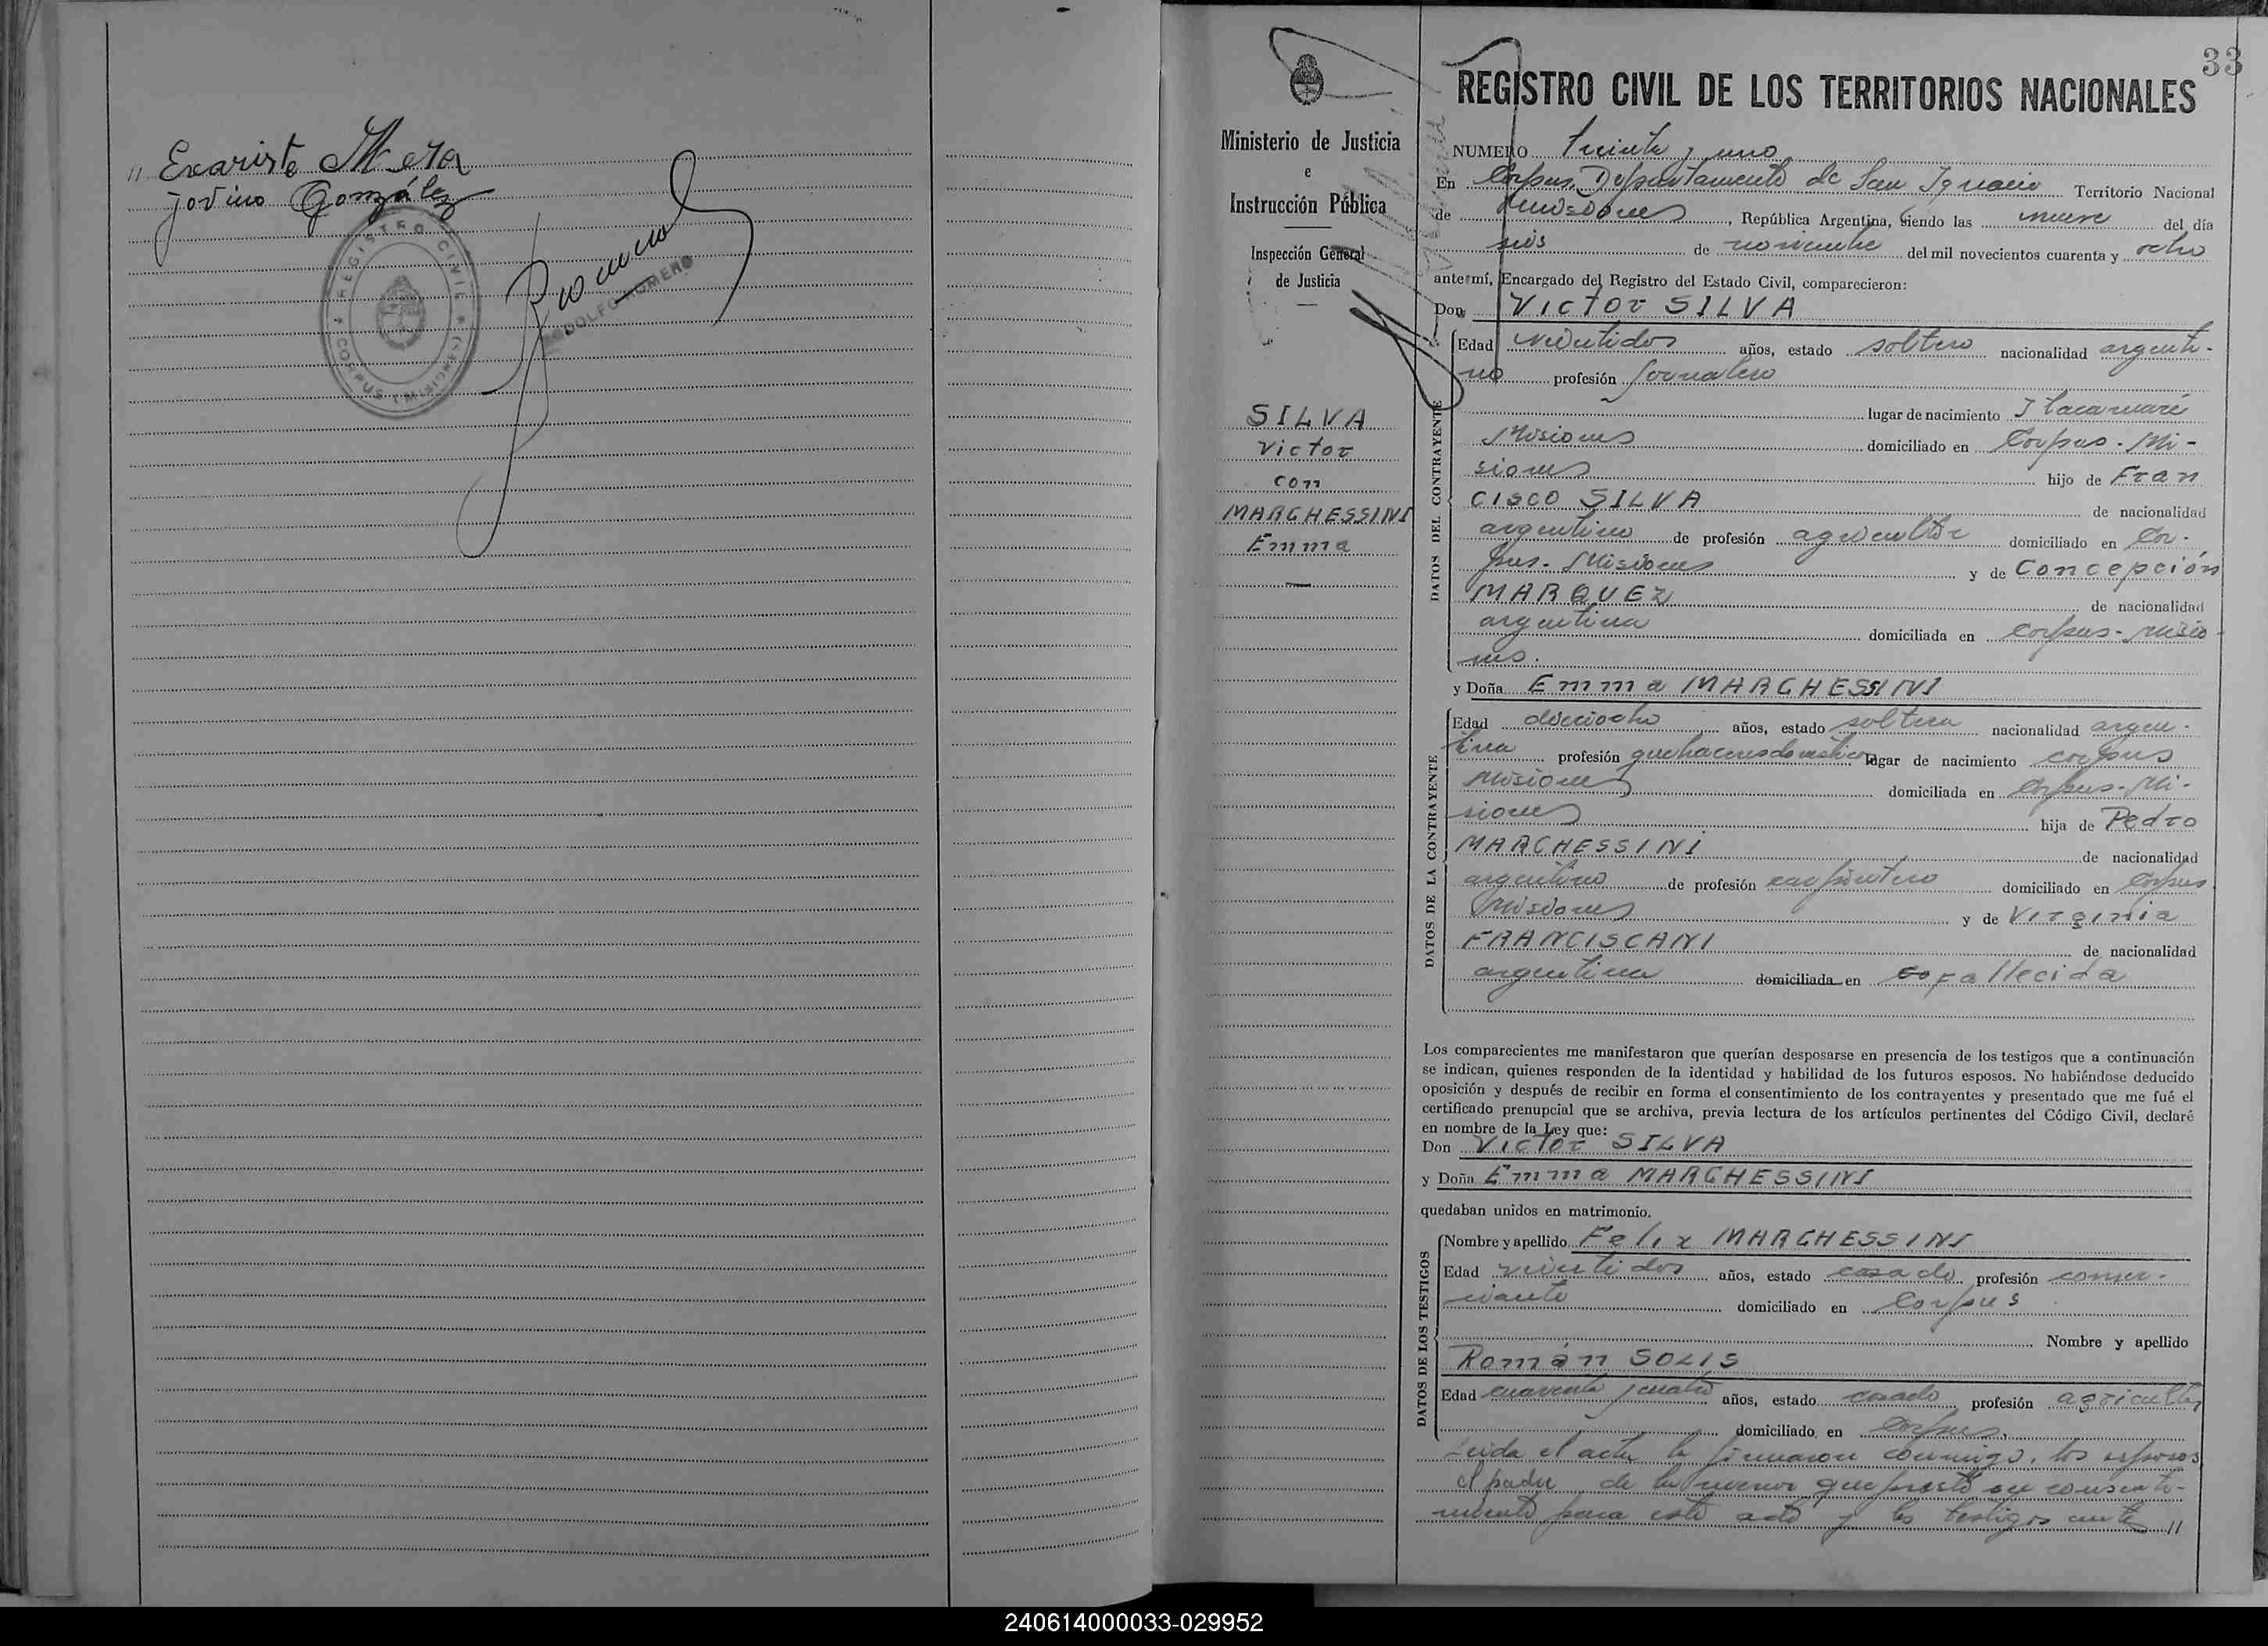 " Evaristo Mera
Jovino González
REGISTRO CIVIL
CORPUS (MISIONES)
ADOLFO ROMERO
33
Ministerio de Justicia
e
Instrucción Pública
Inspección General
de Justicia
SILVA
Victor
con
MARCHESSINI
Emma
REGISTRO CIVIL DE LOS TERRITORIOS NACIONALES
NUMERO treinta y uno
En Corpus, Departamento de San Ignacio Territorio Nacional
de Misiones, República Argentina, siendo las nueve del día
seis de noviembre del mil novecientos cuarenta y ocho
ante mí, Encargado del Registro del Estado Civil, comparecieron:
Don Victor SILVA
DATOS DEL CONTRAYENTE
Edad veintidos años, estado soltero nacionalidad argenti-
no profesión jornalero
lugar de nacimiento Itacaruaré
Misiones domiciliado en Corpus - Mi-
siones hijo de Fran
cisco SILVA de nacionalidad
argentino de profesión agricultor domiciliado en Cor-
pus - Misiones y de Concepción
MARQUEZ de nacionalidad
argentina domiciliada en Corpus - Misio-
nes.
y Doña Emma MARCHESSINI
DATOS DE LA CONTRAYENTE
Edad dieciocho años, estado soltera nacionalidad argen-
tina profesión quehaceres domésticos lugar de nacimiento corpus
Misiones domiciliada en Corpus - Mi-
siones hija de Pedro
MARCHESSINI de nacionalidad
argentino de profesión carpintero domiciliado en Corpus
Misiones y de Virginia
FRANCISCANI de nacionalidad
argentina domiciliada en Co Fallecida
Los comparecientes me manifestaron que querían desposarse en presencia de los testigos que a continuación
se indican, quienes responden de la identidad y habilidad de los futuros esposos. No habiéndose deducido
oposición y después de recibir en forma el consentimiento de los contrayentes y presentado que me fué el
certificado prenupcial que se archiva, previa lectura de los artículos pertinentes del Código Civil, declaré
en nombre de la Ley que:
Don Victor SILVA
y Doña Emma MARCHESSINI
quedaban unidos en matrimonio.
DATOS DE LOS TESTIGOS
Nombre y apellido Felix MARCHESSINI
Edad veinti dos años, estado casado profesión comer-
ciante domiciliado en Corpus
Nombre y apellido
Román SOLIS
Edad cuarenta y cuatro años, estado casado profesión agricultor
domiciliado en Corpus.
Leida el acta la firmaron conmigo, los esposos
el padre de la menor que prestó su consenti-
miento para este acto y los testigos ante "
240614000033-029952